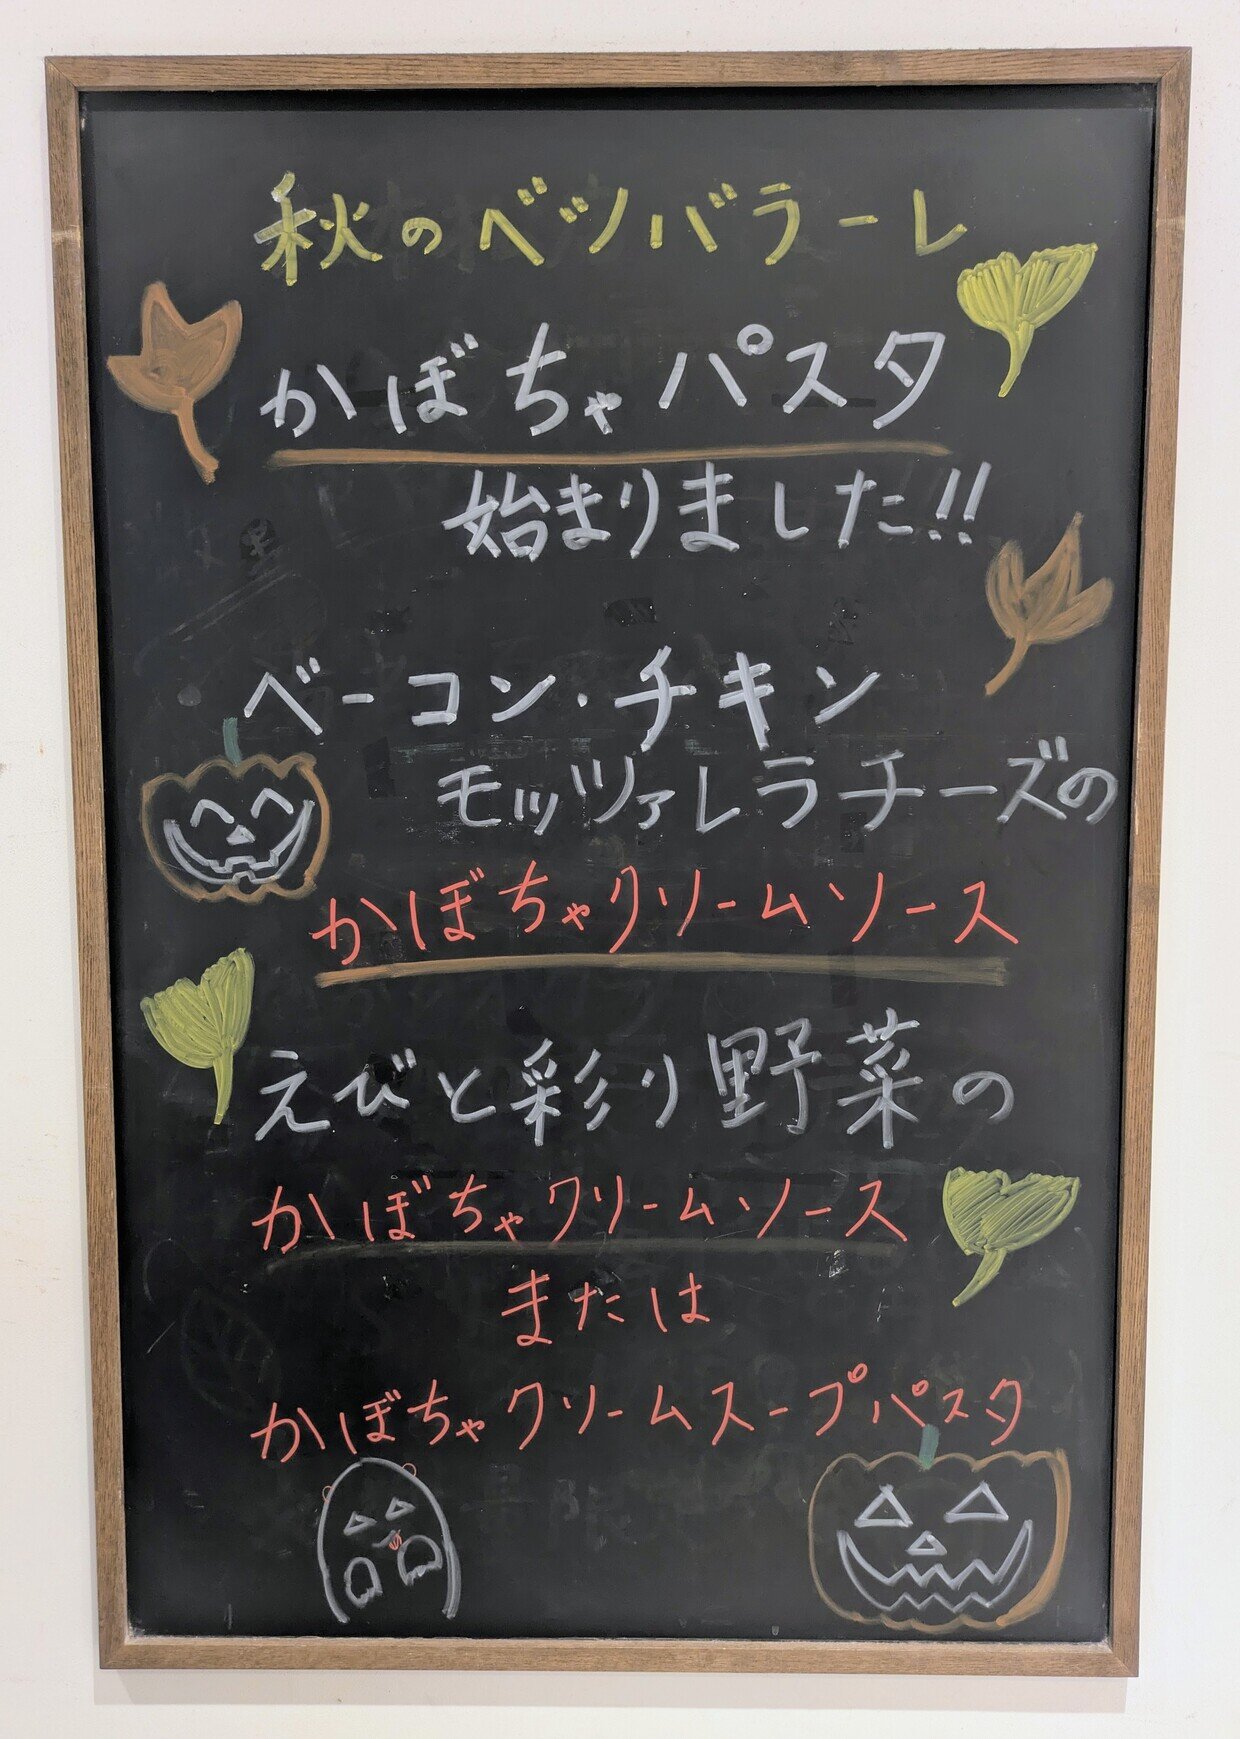 秋のベツバラーレ
かぼちゃパスタ
始まりました!!
ベーコン・チキン
モッツァレラチーズの
かぼちゃクリームソース
えびと彩り野菜の
かぼちゃクリームソース
または
かぼちゃクリームスープパスタ